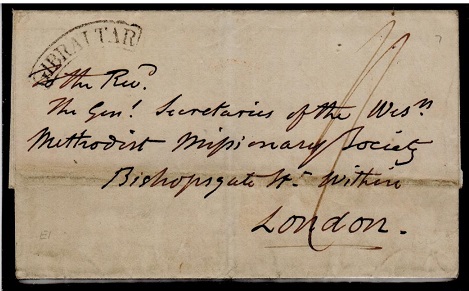 GIBRALTAR
To the Revd.
The Genl. Secretaries of the Wesn
Methodist Missionary Society
Bishopsgate St. Within
London.
E1